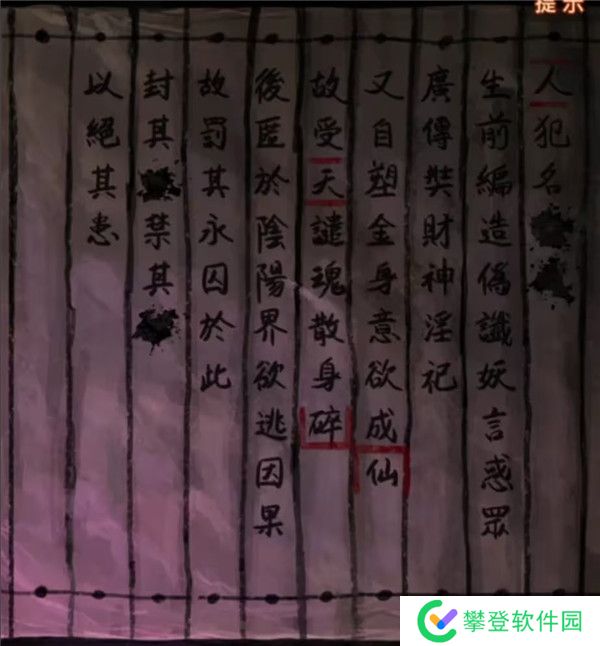 提示
人犯名
生前編造偽讖妖言惑眾
廣傳奘財神淫祀
又自塑金身意欲成仙
故受天譴魂散身碎
後匿於陰陽界欲逃因果
故罰其永囚於此
封其禁其
以絕其患
攀登软件园